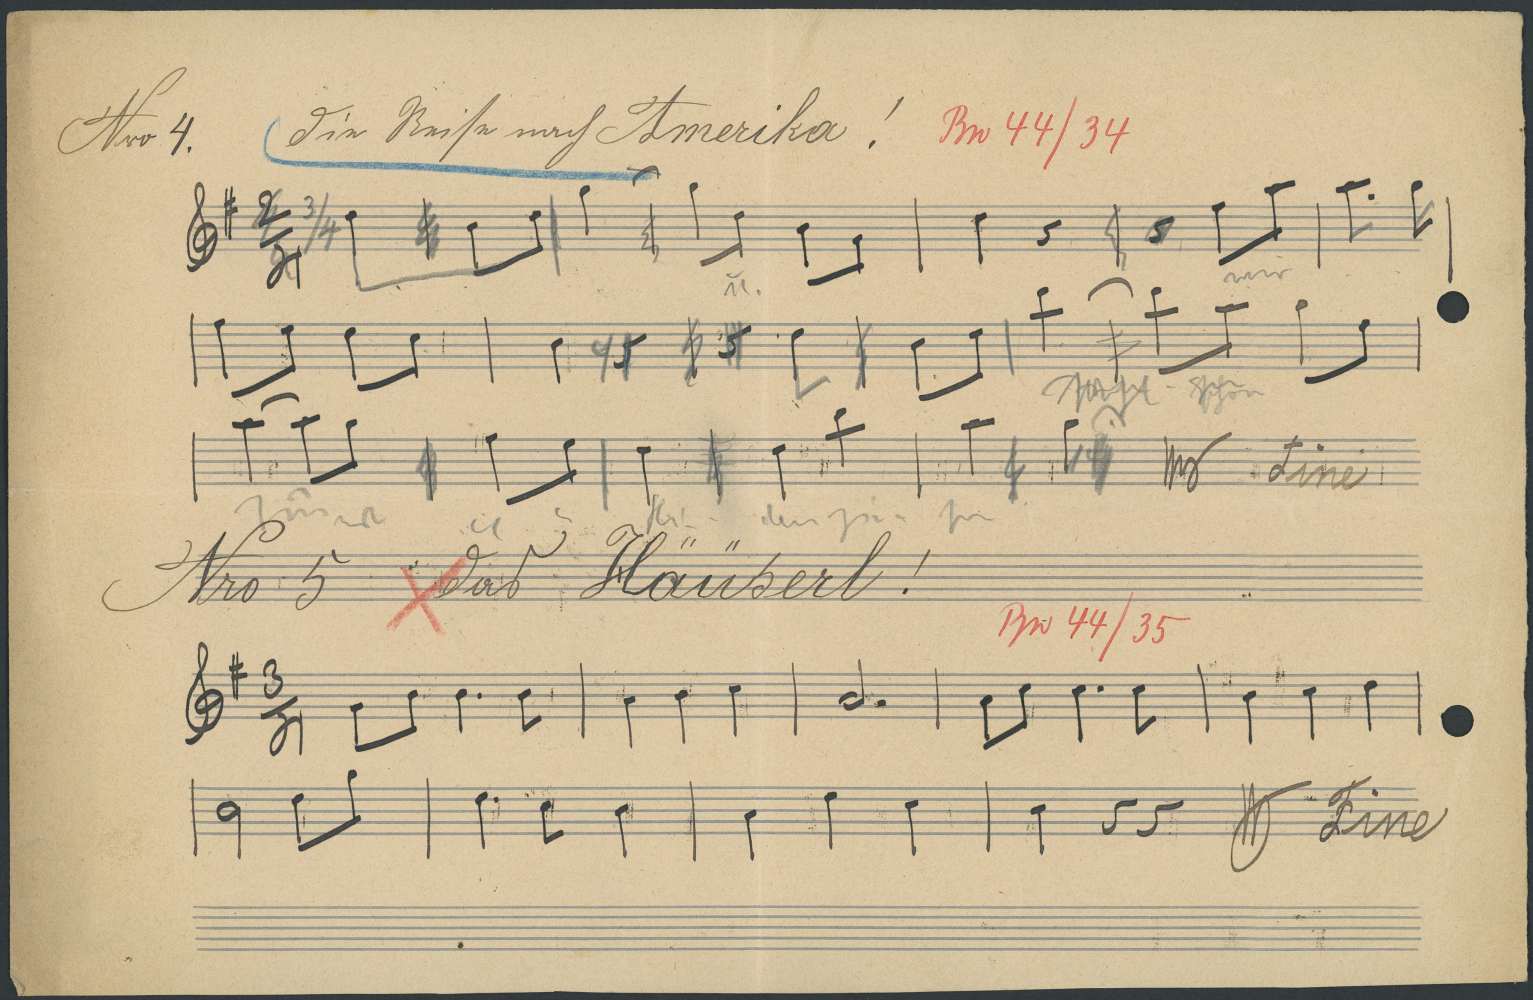 Nro 4. Die Reise nach Amerika! Bn 44/34
2/4 3/4
u.
wir
schön
Fine
Nro 5 Das Häüserl!
Bn 44/35
3/4
Fine